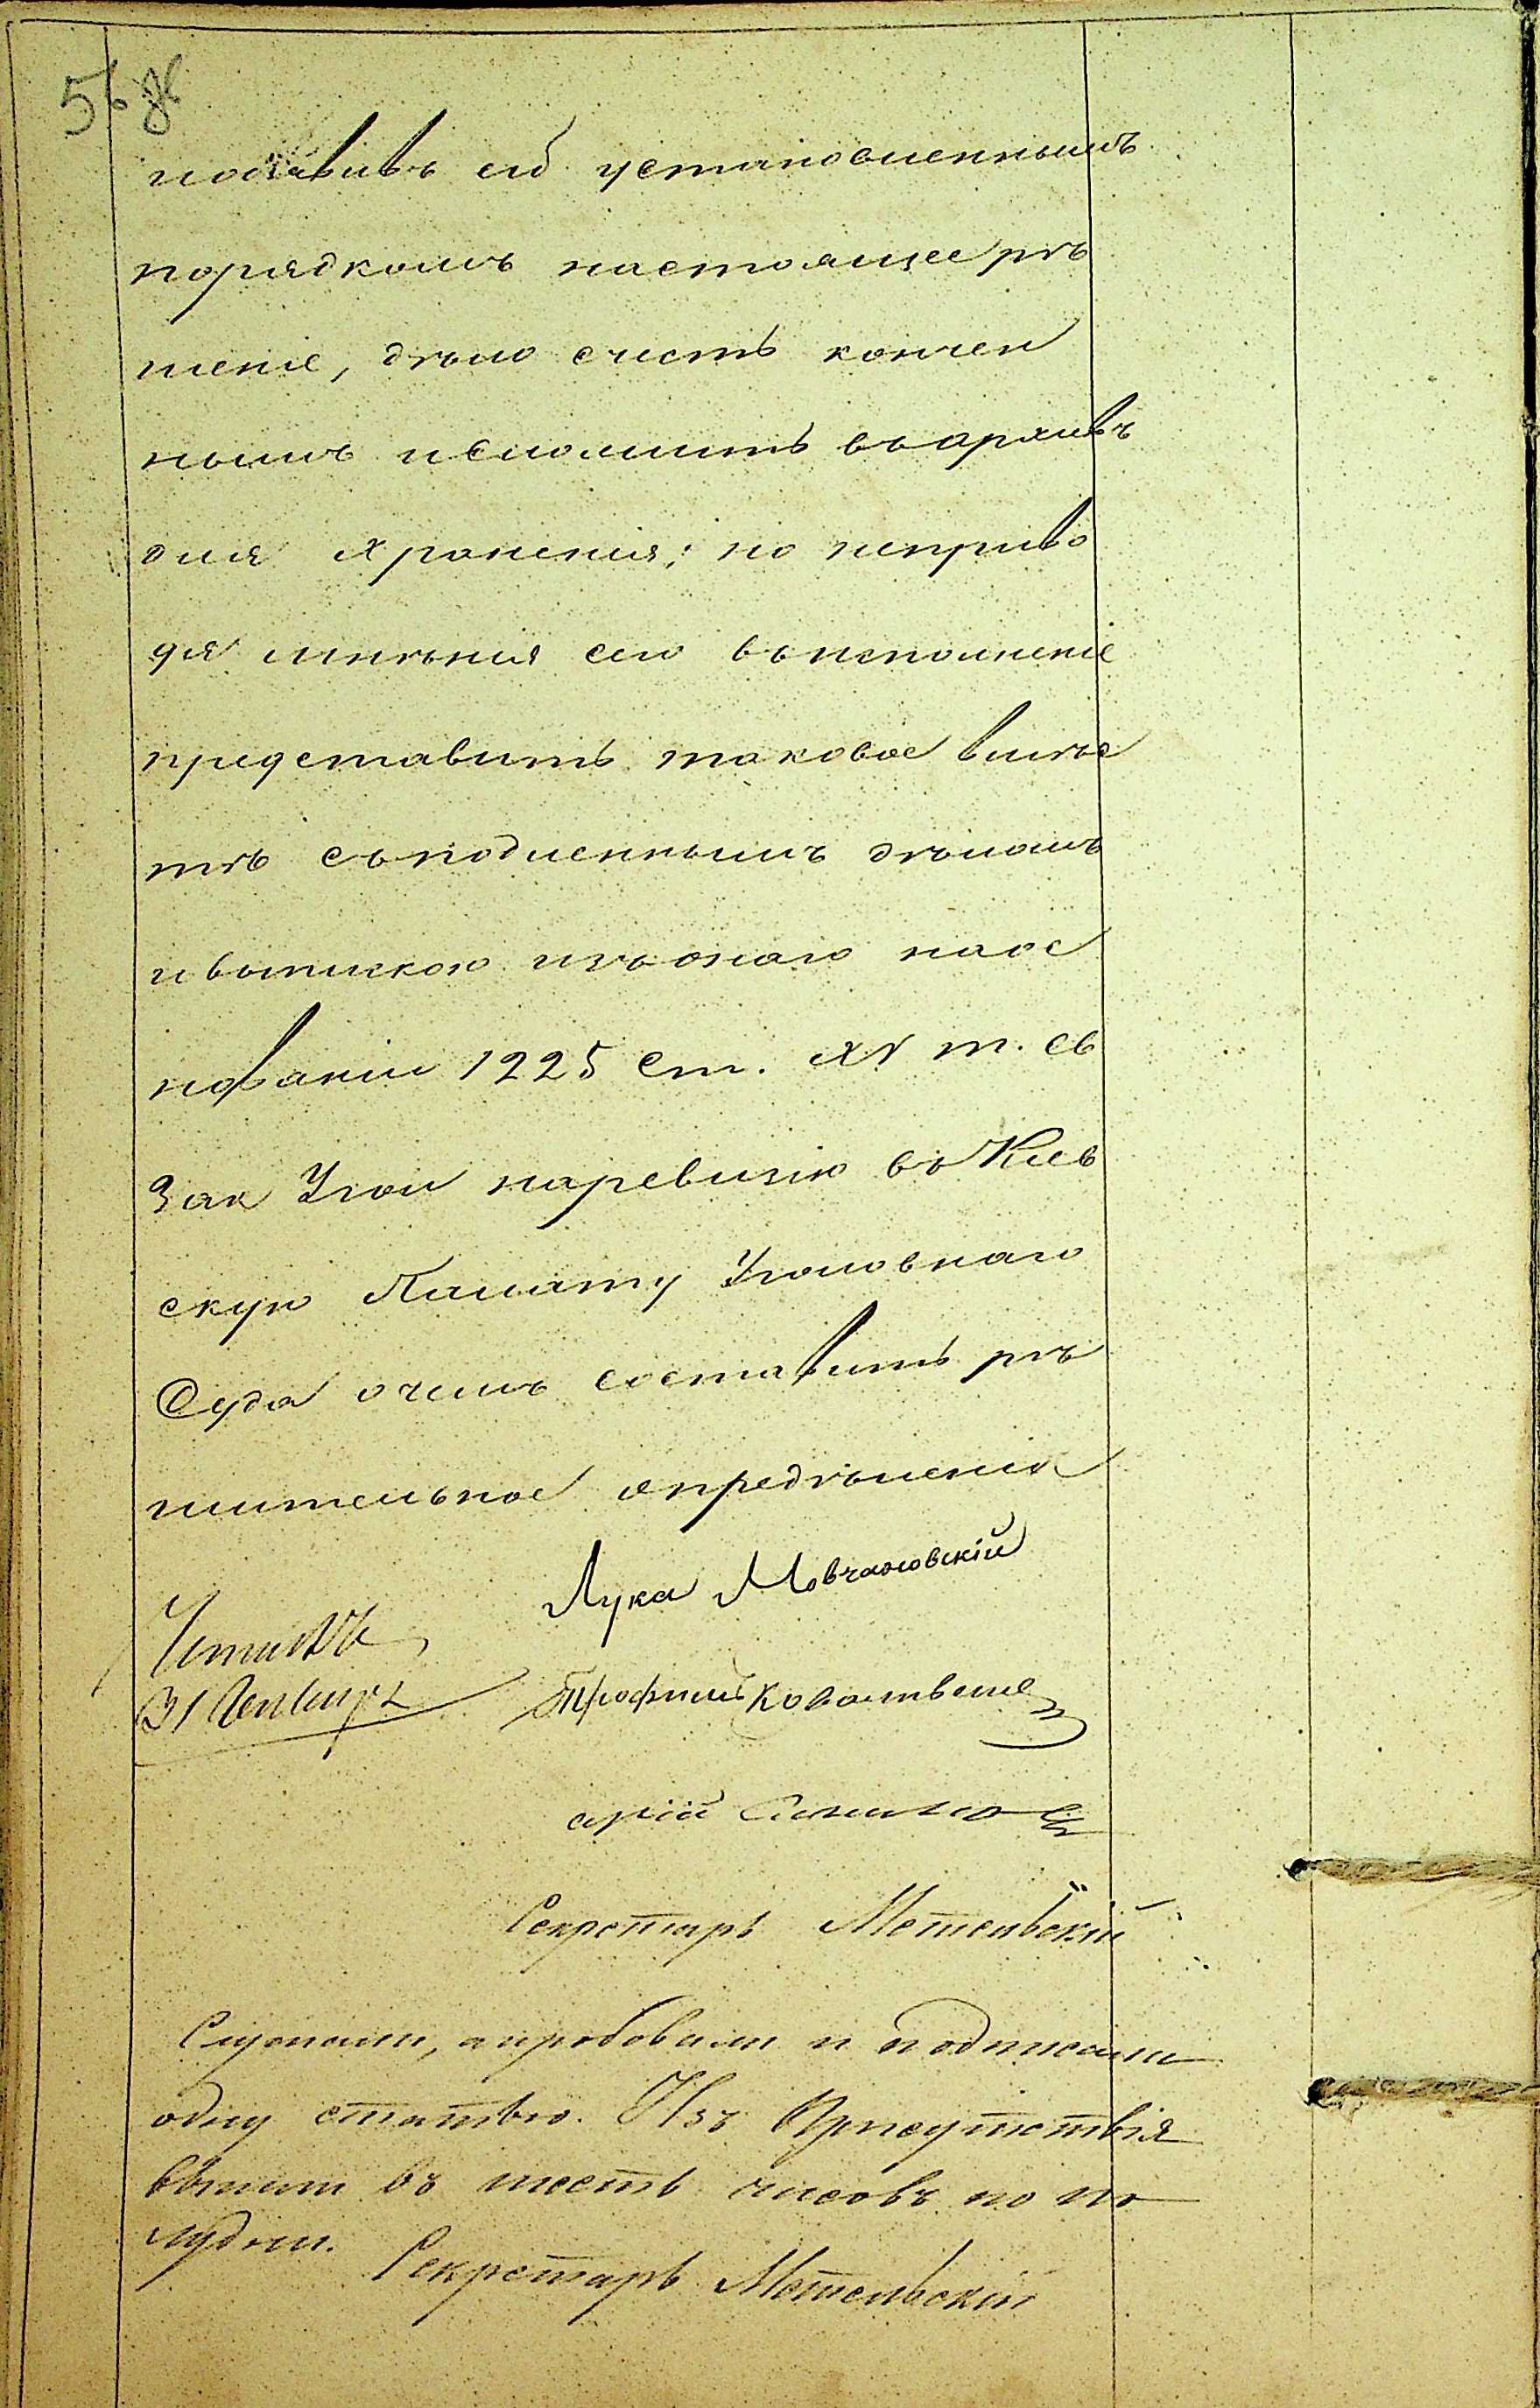 56 об
имъ установленнымъ
порядкомъ настоящее рѣ
шеніе, дѣло счесть кончен
нымъ и сложить въ архивъ
для храненія; но неприво
дя мнѣнія сего въ исполненіе
представить таковое вмѣс
тѣ съ подленнымъ дѣломъ
и выпискою изъ онаго на ос
нованіи 1225 Ст. XV т. Св
Зак Угол наревизію въ Кіев
скую Палату Уголовнаго
Суда о чемъ составить рѣ
шительное опредѣленіе
Лука Мовчановскій
Читалъ
Трофимъ
Секретарь Метельскій
Слушали, апробовали и подписали
одну статью. Изъ Присутствія
вышли въ шесть часовъ по по
лудни.
Секретарь Метельскій